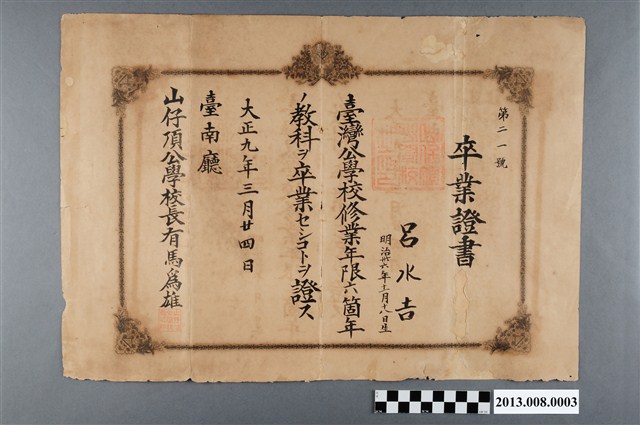 第二一號
卒業證書
呂水吉
明治卅六年十二月十八日生
臺灣公學校修業年限六箇年
ノ教科ヲ卒業セシコトヲ證ス
大正九年三月廿四日
臺南廳
山仔頂公學校長有馬爲雄
2013.008.0003